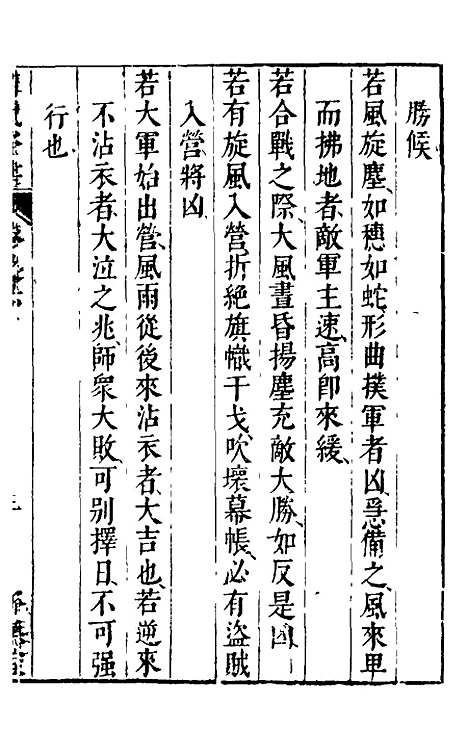 勝候
若風旋塵、如穗如蛇、形曲撲軍者凶、急備之、風來卑
而拂地者、敵軍主速、高卽來緩、
若合戰之際、大風晝昏揚塵充敵大勝、如反是凶
若有旋風入營、折絶旗幟干戈、吹壞幕帳、必有盜賊
入營將凶
若大軍始出營、風雨從後來沾衣者、大吉也、若逆來
不沾衣者、大泣之兆、師衆大敗、可別擇日、不可强
行也